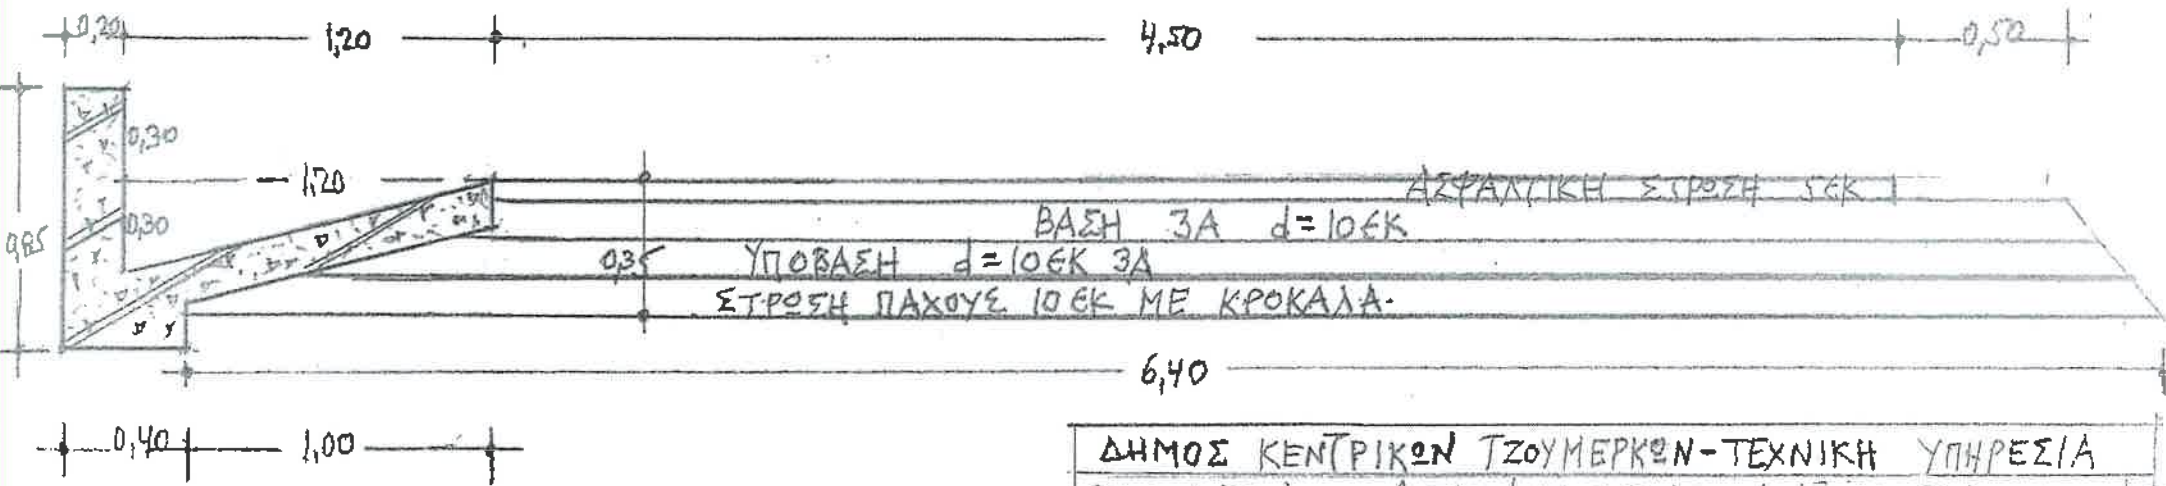 0,20 1,20 4,50 0,50
0,30
1,20
ΑΣΦΑΛΤΙΚΗ ΣΤΡΩΣΗ 5ΕΚ
0,30
ΒΑΣΗ 3Α d=10ΕΚ
0,85
0,35 ΥΠΟΒΑΣΗ d=10ΕΚ 3Α
ΣΤΡΩΣΗ ΠΑΧΟΥΣ 10 ΕΚ ΜΕ ΚΡΟΚΑΛΑ.
6,40
0,40 1,00
ΔΗΜΟΣ ΚΕΝΤΡΙΚΩΝ ΤΖΟΥΜΕΡΚΩΝ-ΤΕΧΝΙΚΗ ΥΠΗΡΕΣΙΑ